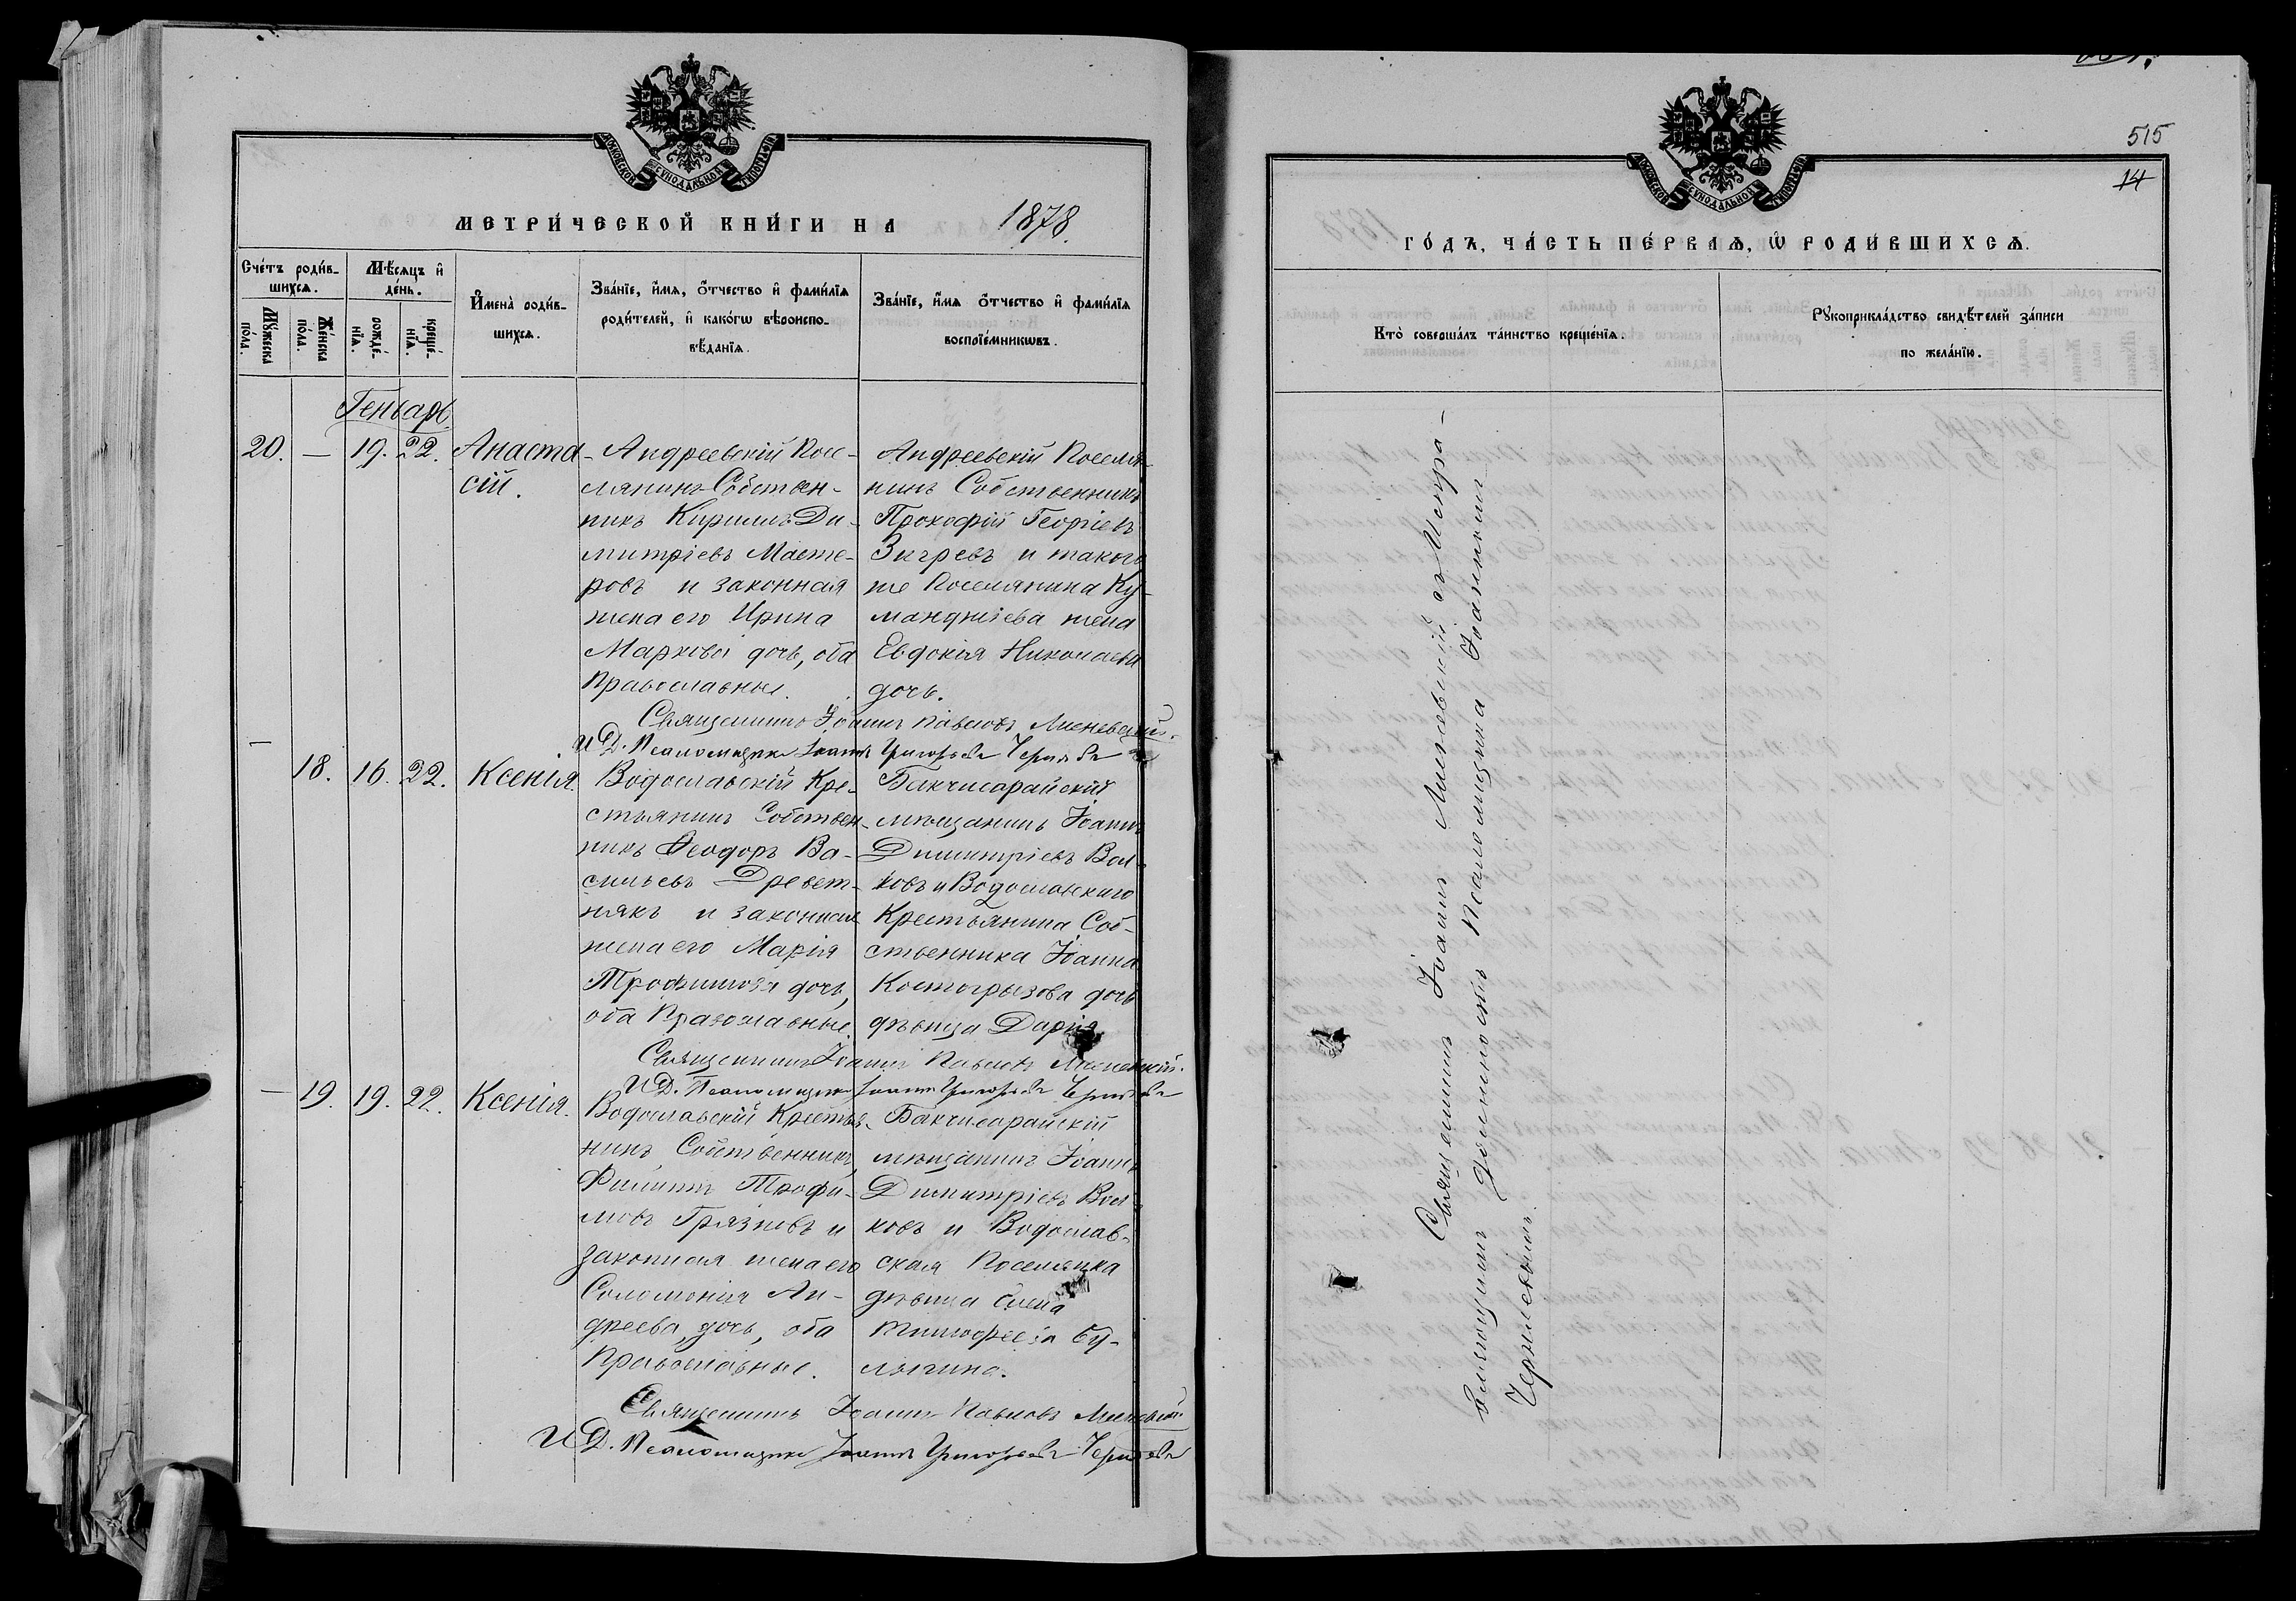 МОСКОВСКОЙ СУНОДАЛЬНОЙ ТИПОГРАФІИ
МЕТРИ́ЧЕСКОЙ КНИ́ГИ НА 1878.
Сче́тъ роди́вшихсѧ.
Мꙋ́жеска по́ла.
Же́нска по́ла.
Мѣ́сѧцъ и҆ де́нь.
рожде́нїѧ.
креще́нїѧ.
И҆мена̀ роди́вшихсѧ.
Зва́нїе, и҆́мѧ, ѻ҆́тчество и҆ фами́лїѧ
роди́телей, и҆ како́гѡ вѣроиспо-
вѣ́данїѧ.
Зва́нїе, и҆́мѧ ѻ҆́тчество и҆ фами́лїѧ
воспрїе́мникѡвъ.
Генварь
20. — 19. 22. Анаста-
сій.
Андреевскій Посе-
лянинъ Собствен-
никъ Кириллъ Ди-
митріевъ Масте-
ровъ и законная
жена его Ирина
Маркова дочь, оба
Православные.
Андреевскій Поселя-
нинъ Собственникъ
Прокофій Георгіевъ
Зигревъ и такого
же Поселянина Ку-
манджіева жена
Евдокія Николаева
дочь.
Священникъ Іоаннъ Павловъ Лисневскій.
И.Д. Псаломщика Іоаннъ Григорьевъ
— 18. 16. 22. Ксенія.
Водославскій Кре-
стьянинъ Собствен-
никъ Ѳеодоръ Ва-
сильевъ Древет-
някъ и законная
жена его Марія
Трофимова дочь,
оба Православные.
Бакчисарайскій
мѣщанинъ Іоаннъ
Димитріевъ Вол-
ковъ и Водославскаго
Крестьянина Соб-
ственника Іоанна
Костогрызова дочь
дѣвица Дарія
Священникъ Іоаннъ Павловъ Лисневскій.
И.Д. Псаломщика Іоаннъ Григорьевъ
— 19. 19. 22. Ксенія.
Водославскій Крестья-
нинъ Собственникъ
Филиппъ Трофи-
мовъ Грязновъ и
законная жена его
Соломонія Ан-
дреева дочь, оба
Православные.
Бакчисарайскій
мѣщанинъ Іоаннъ
Димитріевъ Вол-
ковъ и Водослав-
ская Поселянка
дѣвица Елена
Тимофеева Бу-
лыгина.
Священникъ Іоаннъ Павловъ Лисневскій
И.Д. Псаломщика Іоаннъ Григорьевъ
515
14
МОСКОВСКОЙ СУНОДАЛЬНОЙ ТИПОГРАФІИ
ГО́ДЪ, ЧА́СТЬ ПЕ́РВАѦ, Ѡ҆ РОДИ́ВШИХСѦ.
Кто̀ соверша́лъ та́инство креще́нїѧ.
Рꙋкоприкла́дство свидѣ́телей за́писи
по жела́нїю.
Священникъ Іоаннъ Лисневскій съ Испра-
вляющимъ должность Псаломщика Іоанникіемъ